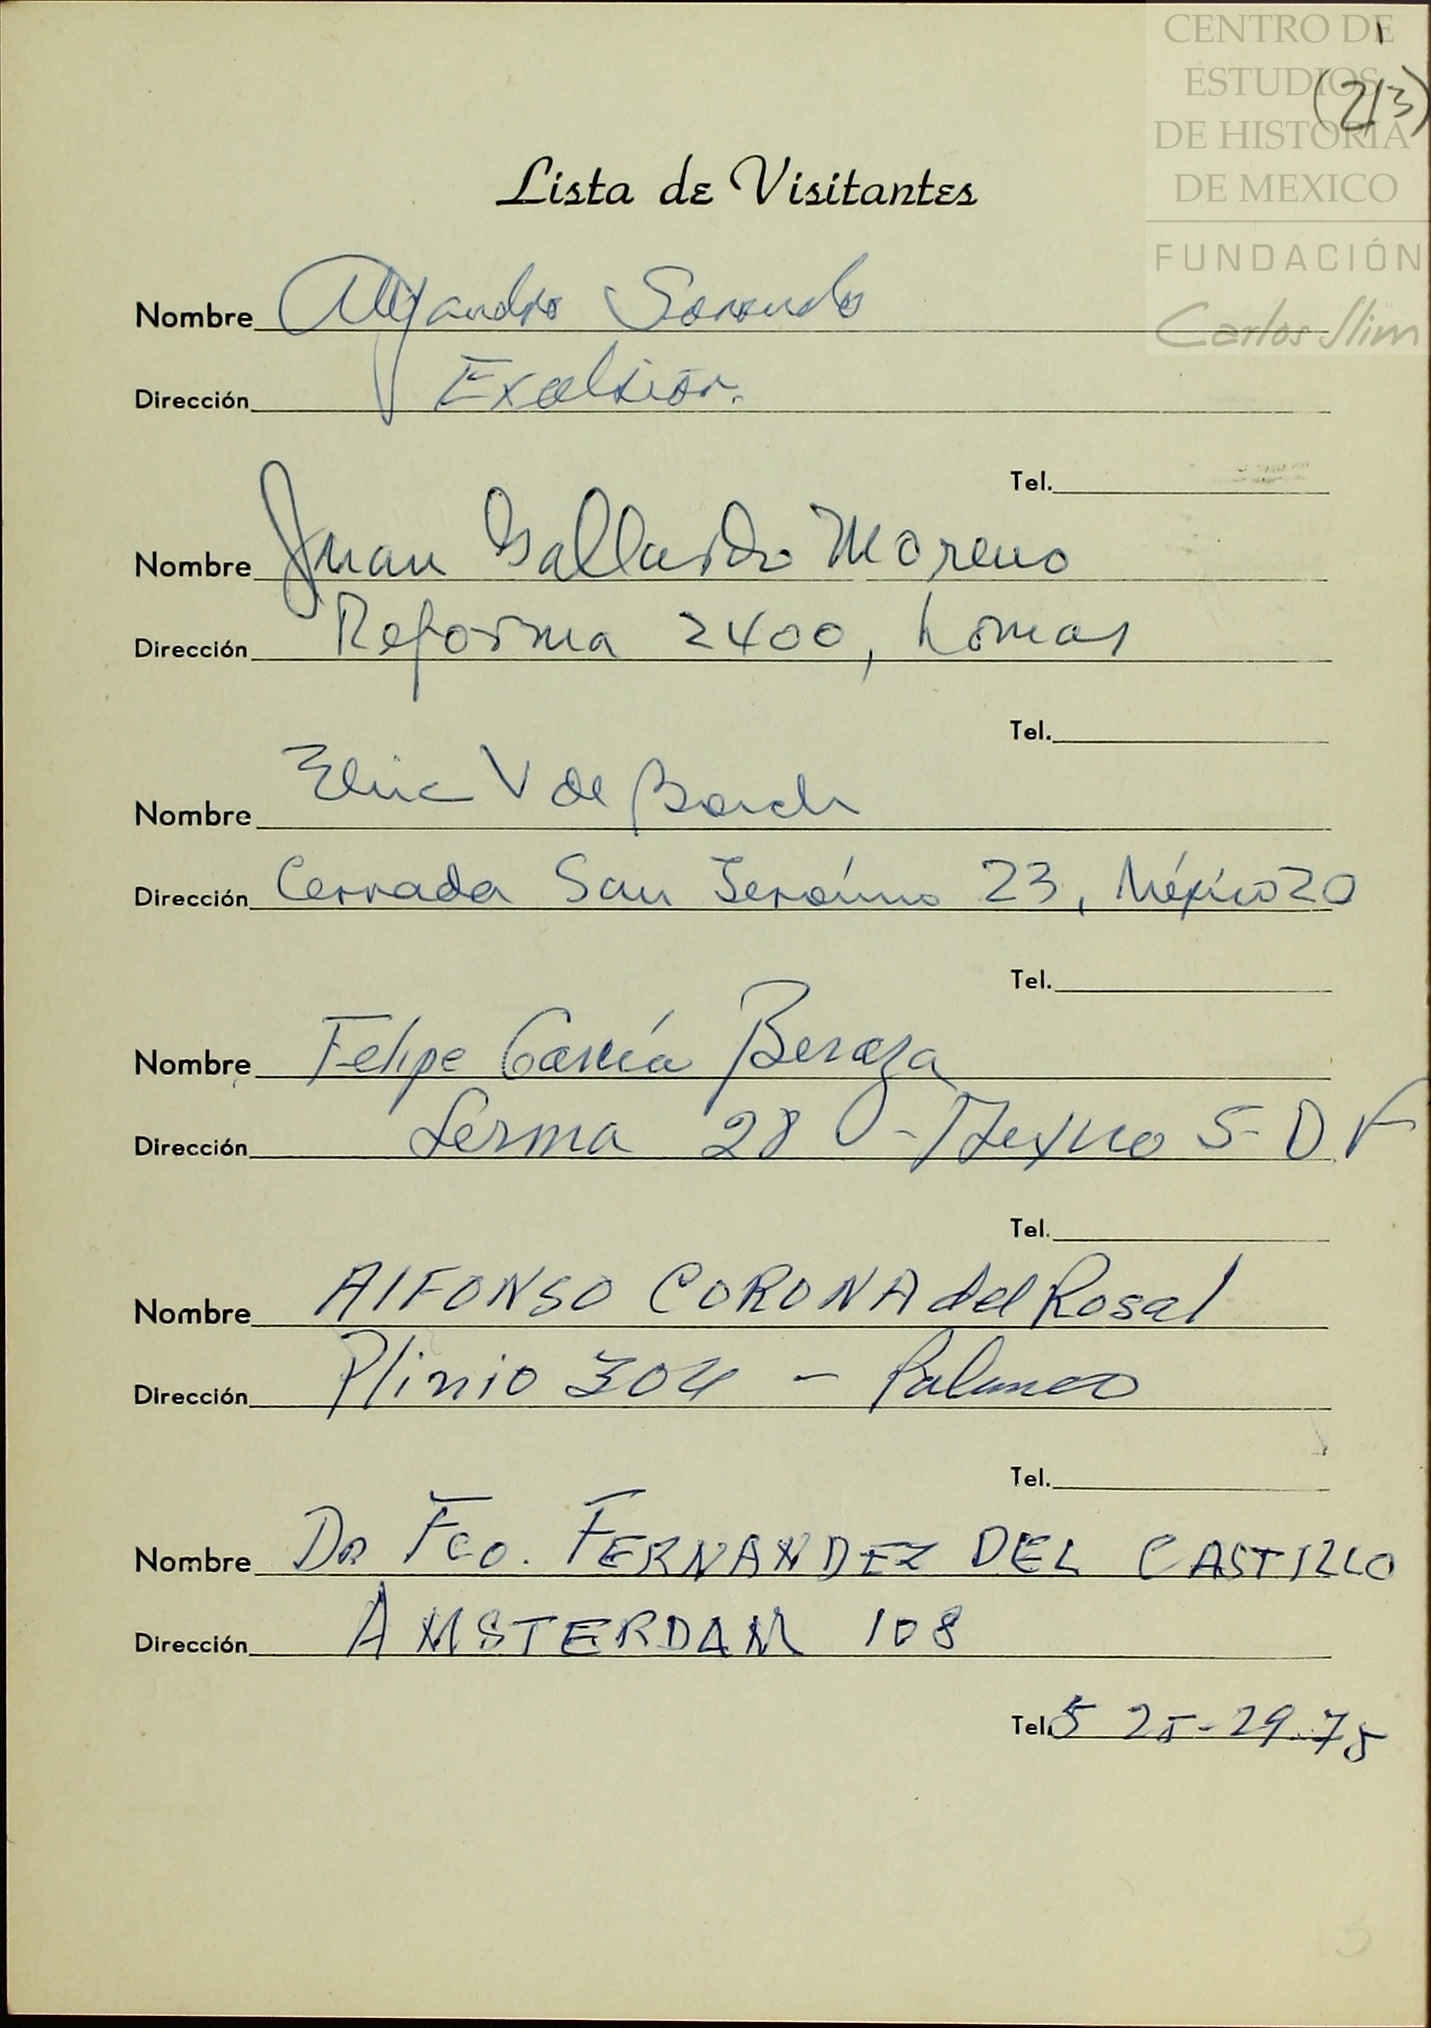 CENTRO DE
ESTUDIOS
DE HISTORIA
DE MEXICO
FUNDACIÓN
Carlos Slim
1
(2/3)
Lista de Visitantes
Nombre Alejandro
Dirección Excelsior.
Tel.
Nombre Juan Gallardo Moreno
Dirección Reforma 2400, Lomas
Tel.
Nombre V de
Dirección Cerrada San Jerónimo 23, México 20
Tel.
Nombre Felipe García Beraza
Dirección Lerma 28 - Mexico 5 - D F
Tel.
Nombre AlFONSO CORONA del Rosal
Dirección Plinio 304 - Polanco
Tel.
Nombre Dr Fco. FERNANDEZ DEL CASTILLO
Dirección AMSTERDAM 108
Tel. 5 25-29.75